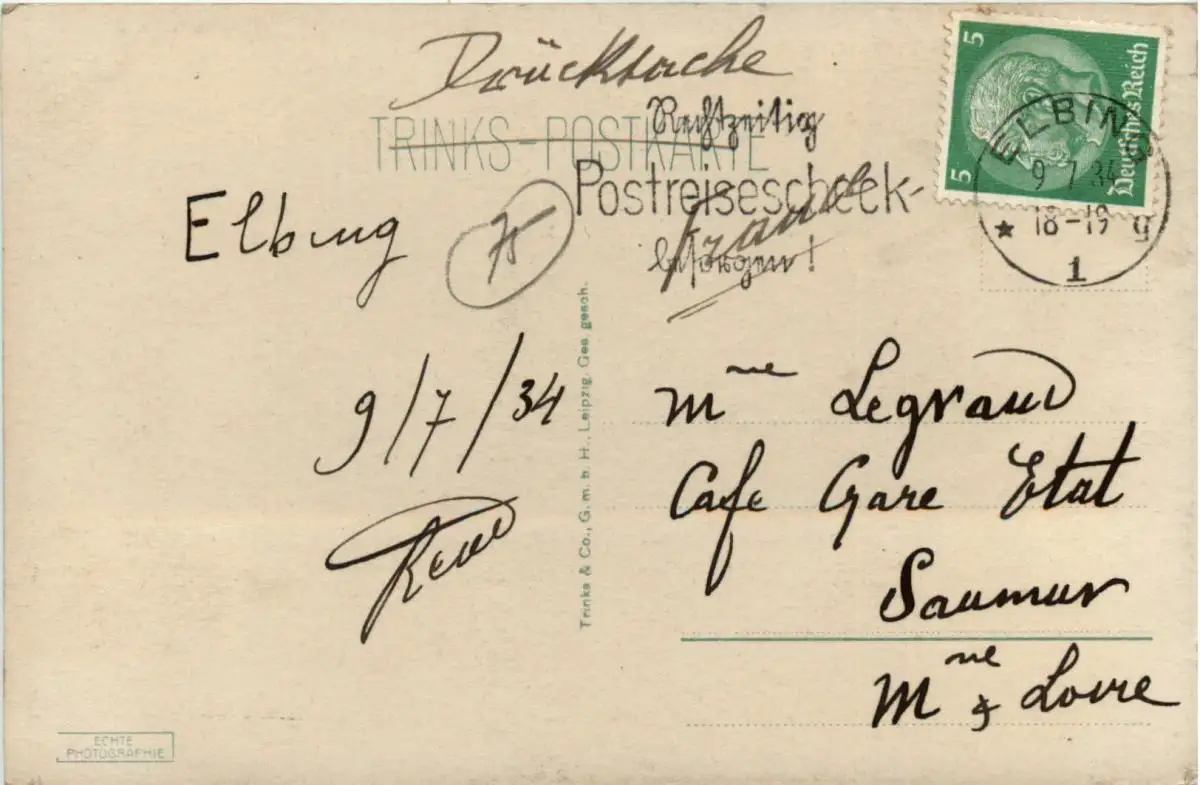 Drücksache
TRINKS-POSTKARTE
Rechtzeitig
Postreisescheck-
besorgen!
5
5
Deutsches Reich
ELBING
9 7 34
18-19
★ g
1
Elbing
75
9/7/34
René
Mme Legrand
Cafe Gare Etat
Saumur
Mne & Loire
Trinks & Co., G.m.b.H., Leipzig. Ges. gesch.
ECHTE
PHOTOGRAPHIE